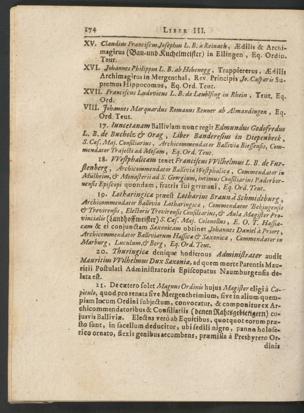 174 LIBER III.
XV. Claudius Franciscus Josephus L. B. à Reinach, Ædilis & Archi-
magirus (Bau-und Kuchelmeister) in Ellingen, Eq. Ordin.
Teut.
XVI. Johannes Philippus L. B. ab Hohenegg, Trappiererus, Ædilis
Archimagirus in Mergenthal, Rev. Principis Jo. Casparis Su-
premus Hippocomus, Eq. Ord. Teut.
XVII. Franciscus Ludovicus L. B. de in Rhein, Teut. Eq.
Ord.
XVIII. Johannes Marquardus Romanus Renner ab Almandingen, Eq.
Ord. Teut.
17. Juncetanam Balliviam nunc regit Edmundus Godefredus
L. B. de Bucholz & Orag, Liber Banderesius in Diepenbeck,
S. Cæs. Maj. Consiliarius, Archicommendator Balliviæ Biesensis, Com-
mendator Trajecti ad Mosam, Eq. Ord. Teut.
18. Westphalicam tenet Franciscus Wilhelmus L. B. de Für-
stenberg, Archicommendator Balliviæ Westphalicæ, Commendator in
Mülheim, & Monasterii ad S. Georgium, intimus Consiliarius Paderbor-
nensis Episcopi quondam, fratris sui germani, Eq. Ord. Teut.
19. Lotharingica præest Lotharius Braun à Schmidtburg,
Archicommendator Balliviæ Lotharingicæ, Commendator Bekingensis
& Trevirensis, Electoris Trevirensis Consiliarius, & Aula Magister Pro-
vincialis (Landhoffmeister) S. Cæs. Maj. Colonellus, E. O. T. Hassia-
cam & ei conjunctam Saxonicam obtinet Johannes Daniel à Priort,
Archicommendator Balliviarum Hassiæ & Saxoniæ, Commendator in
Marburg, Lucul.um, & Berg, Eq. Ord. Teut.
20. Thuringica denique hodiernus Administrator audit
Mauritius Wilhelmus Dux Saxoniæ, ad quem morte Parentis Mau-
ritii Postulati Administratoris Episcopatus Naumburgensis de-
lata est.
21. De cætero solet Magnus Ordinis hujus Magister eligi à Ca-
pitulo, quod pro renata sive Mergentheimium, sive in alium quem-
piam locum Ordini subjectum, convocatur, & componitur ex Ar-
chicommendatoribus & Consiliariis (denen Rahtsgebietigern) cu-
jusvis Balliviæ. Electus verò ab Equitibus, quotquot eorum præ-
sto sunt, in sacellum deducitur, ubi sedili nigro, panno holose-
rico ornato, flexis genibus accumbens, præmissa à Presbytero Or-
dinis